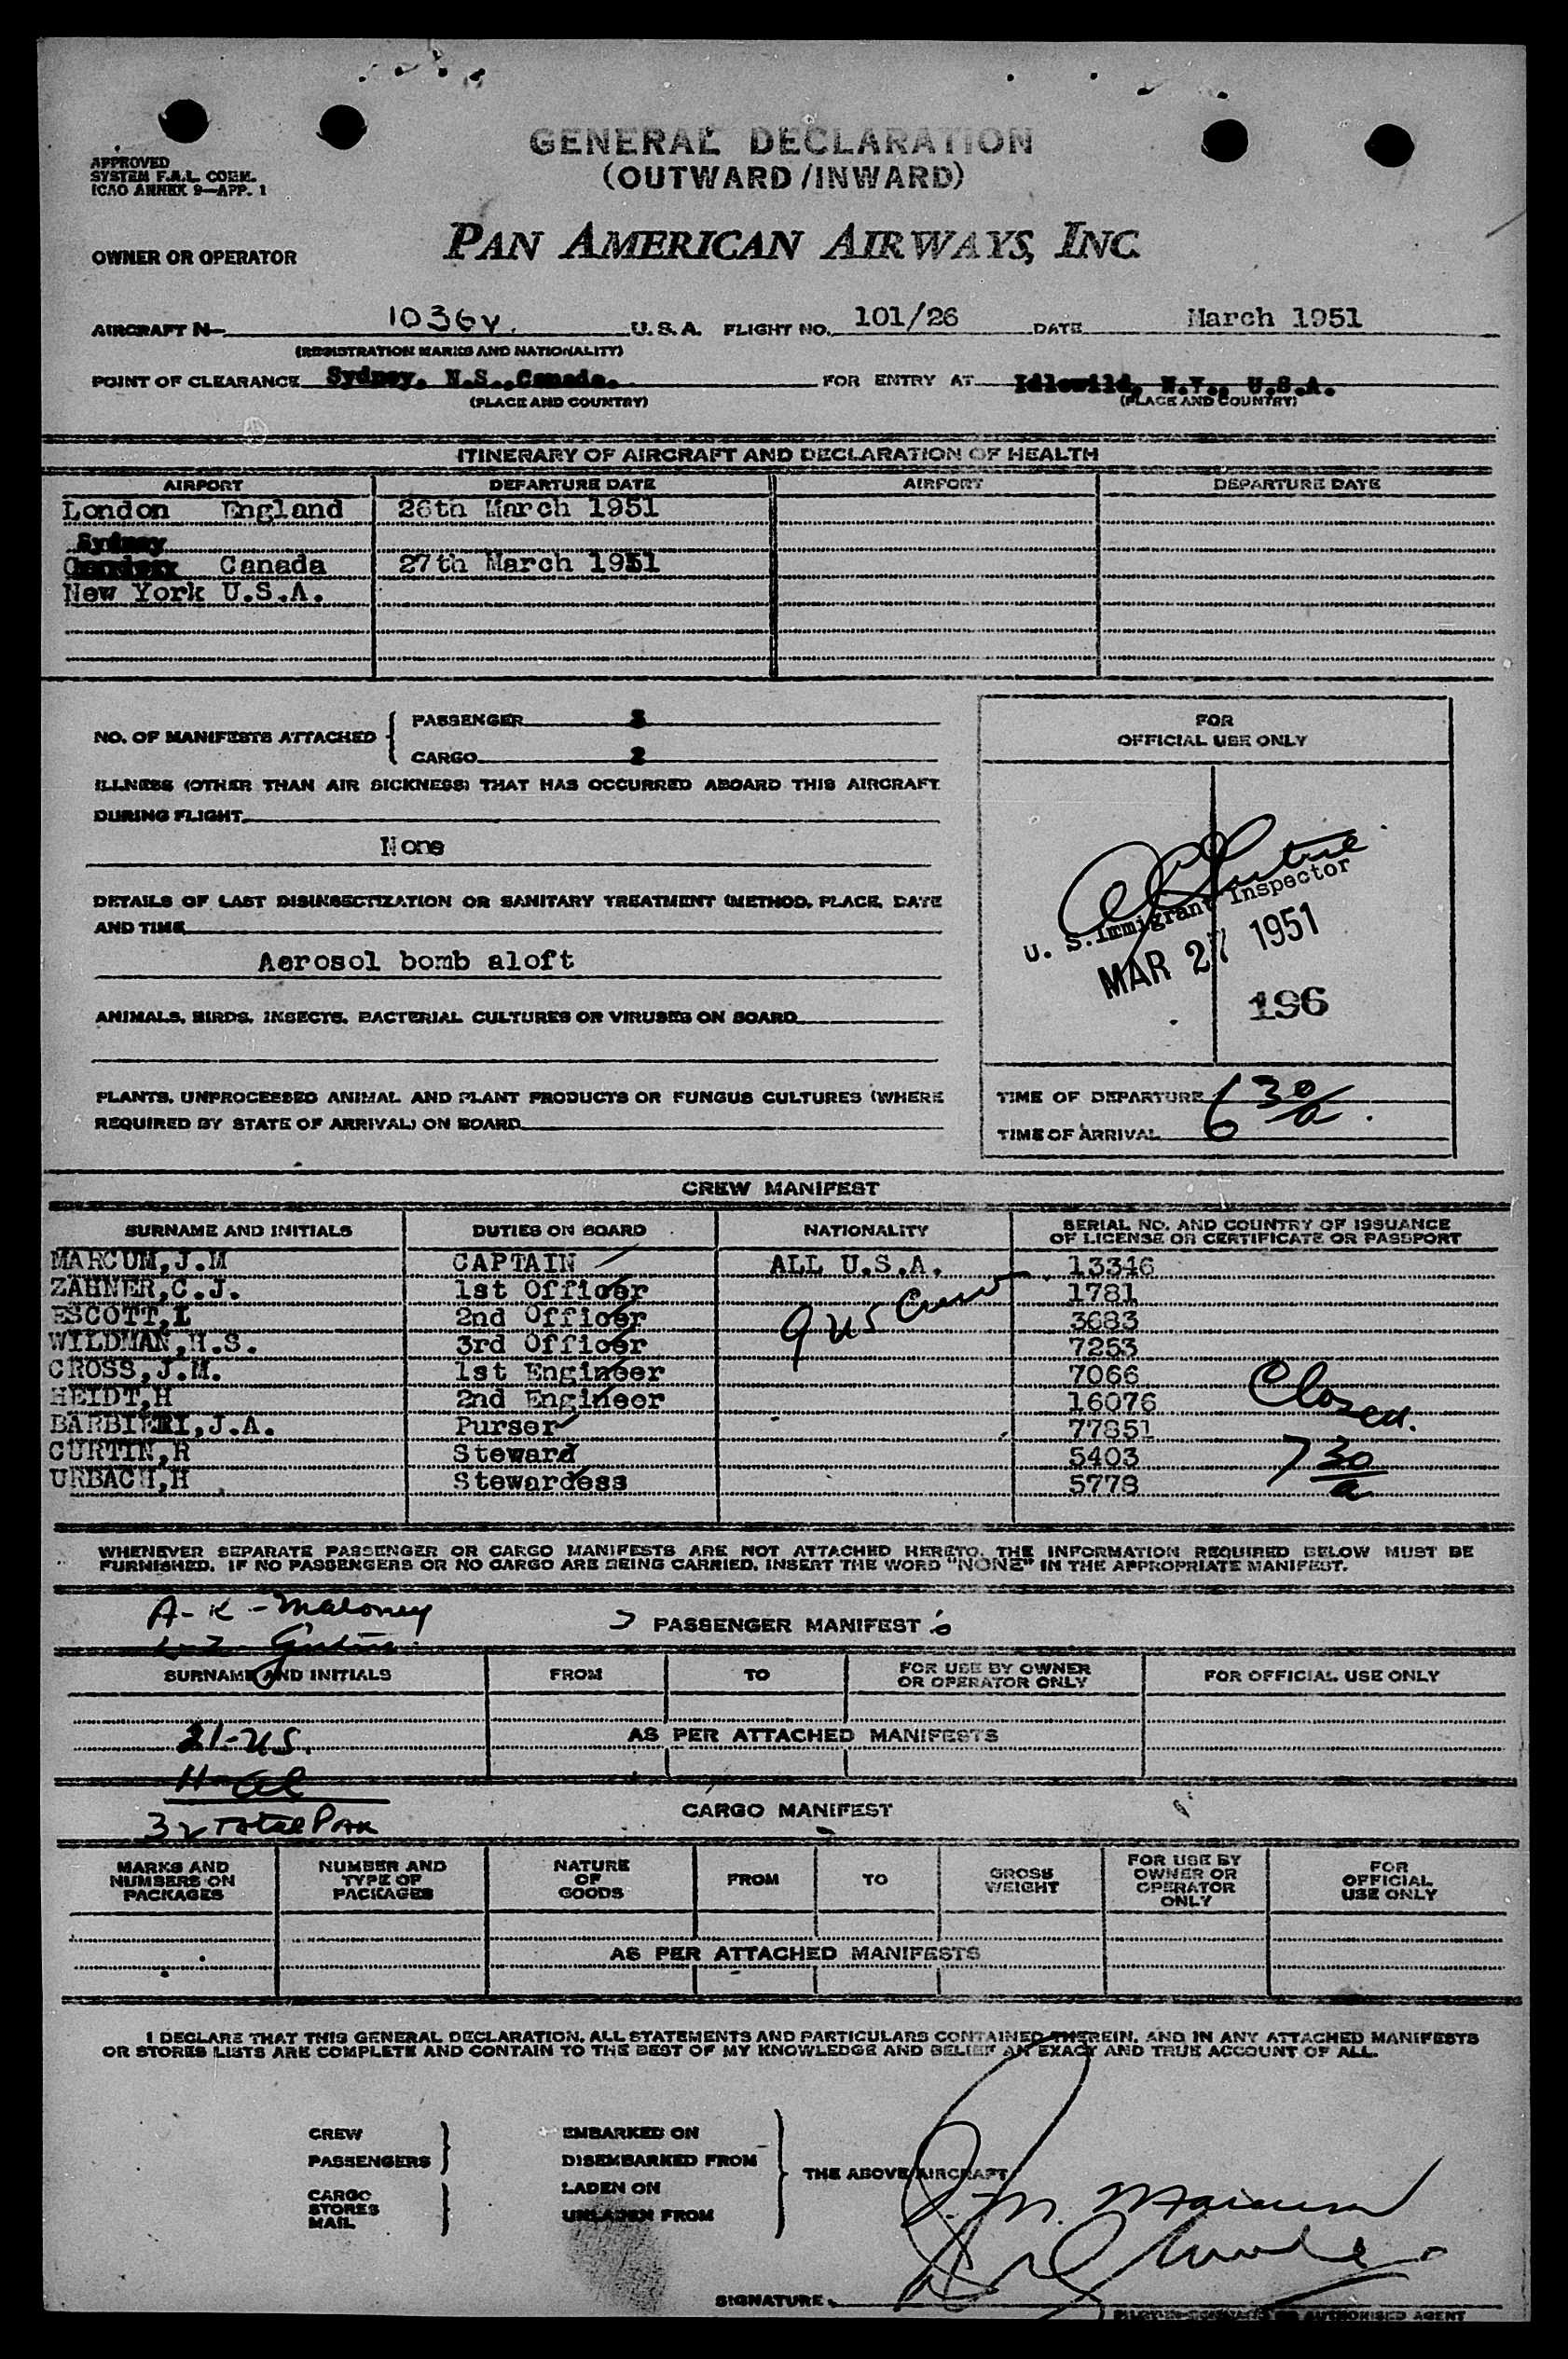 GENERAL DECLARATION
(OUTWARD/INWARD)
APPROVED
SYSTEM F.A.L. COMM.
ICAO ANNEX 9—APP. 1
OWNER OR OPERATOR PAN AMERICAN AIRWAYS, INC.
AIRCRAFT N- 1036V. U.S.A. FLIGHT NO. 101/26 DATE March 1951
(REGISTRATION MARKS AND NATIONALITY)
POINT OF CLEARANCE Sydney, N.S., Canada. FOR ENTRY AT Idlewild, N.Y., U.S.A.
(PLACE AND COUNTRY) (PLACE AND COUNTRY)
ITINERARY OF AIRCRAFT AND DECLARATION OF HEALTH
AIRPORT DEPARTURE DATE AIRPORT DEPARTURE DATE
London England 26th March 1951
Sydney
Canada 27th March 1951
New York U.S.A.
NO. OF MANIFESTS ATTACHED
PASSENGER
CARGO 2
ILLNESS (OTHER THAN AIR SICKNESS) THAT HAS OCCURRED ABOARD THIS AIRCRAFT
DURING FLIGHT
None
DETAILS OF LAST DISINSECTIZATION OR SANITARY TREATMENT (METHOD, PLACE, DATE
AND TIME
Aerosol bomb aloft
ANIMALS, BIRDS, INSECTS, BACTERIAL CULTURES OR VIRUSES ON BOARD
PLANTS, UNPROCESSED ANIMAL AND PLANT PRODUCTS OR FUNGUS CULTURES (WHERE
REQUIRED BY STATE OF ARRIVAL) ON BOARD
FOR
OFFICIAL USE ONLY
U. S. Immigrant Inspector
MAR 27 1951
196
TIME OF DEPARTURE
6 30/a.
TIME OF ARRIVAL
CREW MANIFEST
SURNAME AND INITIALS DUTIES ON BOARD NATIONALITY SERIAL NO. AND COUNTRY OF ISSUANCE
OF LICENSE OR CERTIFICATE OR PASSPORT
MARCUM,J.M CAPTAIN ALL U.S.A. 13346
ZAHNER,C.J. 1st Officer 1781
ESCOTT,L 2nd Officer 9 US Crew 3683
WILDMAN,H.S. 3rd Officer 7253
CROSS,J.M. 1st Engineer 7066
HEIDT,H 2nd Engineer 16076 Closed.
BARBIERI,J.A. Purser 77851
CURTIN,R Steward 5403 7 30/a
URBACH,H Stewardess 5778
WHENEVER SEPARATE PASSENGER OR CARGO MANIFESTS ARE NOT ATTACHED HERETO, THE INFORMATION REQUIRED BELOW MUST BE
FURNISHED. IF NO PASSENGERS OR NO CARGO ARE BEING CARRIED, INSERT THE WORD "NONE" IN THE APPROPRIATE MANIFEST.
A-K - Maloney
L-Z
PASSENGER MANIFEST
SURNAME AND INITIALS FROM TO FOR USE BY OWNER
OR OPERATOR ONLY FOR OFFICIAL USE ONLY
21-US.
AS PER ATTACHED MANIFESTS
11-al
32 Total Pax
CARGO MANIFEST
MARKS AND
NUMBERS ON
PACKAGES
NUMBER AND
TYPE OF
PACKAGES
NATURE
OF
GOODS
FROM
TO
GROSS
WEIGHT
FOR USE BY
OWNER OR
OPERATOR
ONLY
FOR
OFFICIAL
USE ONLY
AS PER ATTACHED MANIFESTS
I DECLARE THAT THIS GENERAL DECLARATION, ALL STATEMENTS AND PARTICULARS CONTAINED THEREIN, AND IN ANY ATTACHED MANIFESTS
OR STORES LISTS ARE COMPLETE AND CONTAIN TO THE BEST OF MY KNOWLEDGE AND BELIEF AN EXACT AND TRUE ACCOUNT OF ALL.
CREW
PASSENGERS
CARGO
STORES
MAIL
EMBARKED ON
DISEMBARKED FROM
LADEN ON
UNLADEN FROM
THE ABOVE AIRCRAFT
J. M. Marcum
SIGNATURE
AUTHORISED AGENT